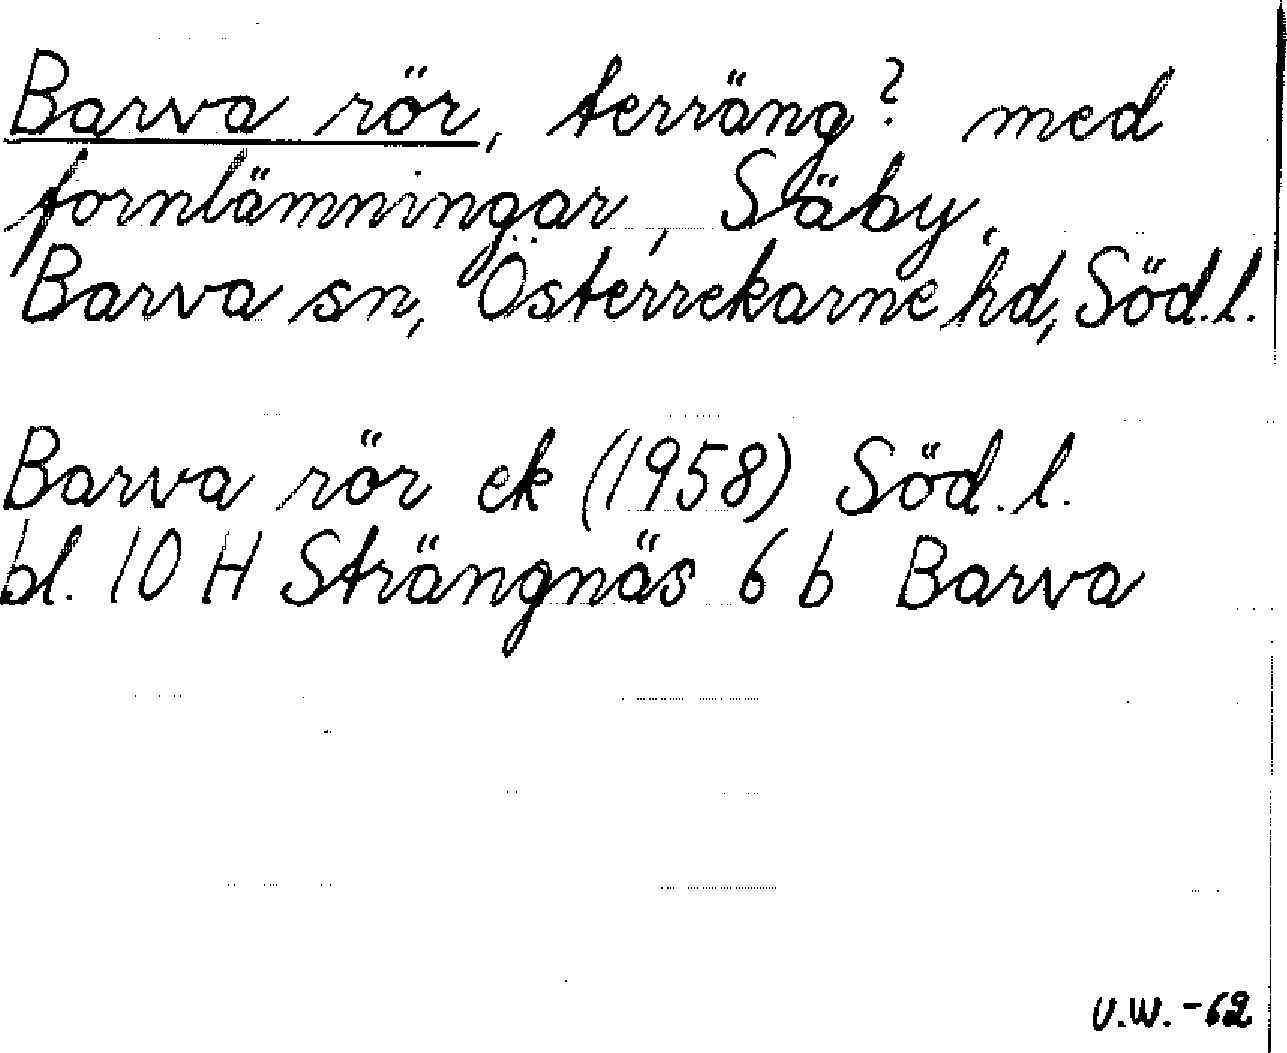 Barva rör, terräng? med
fornlämningar, Säby,
Barva sn, Österrekarne hd, Söd.l.
Barva rör ek (1958) Söd.l.
bl. 10 H Strängnäs 6 b Barva
U.W. -62